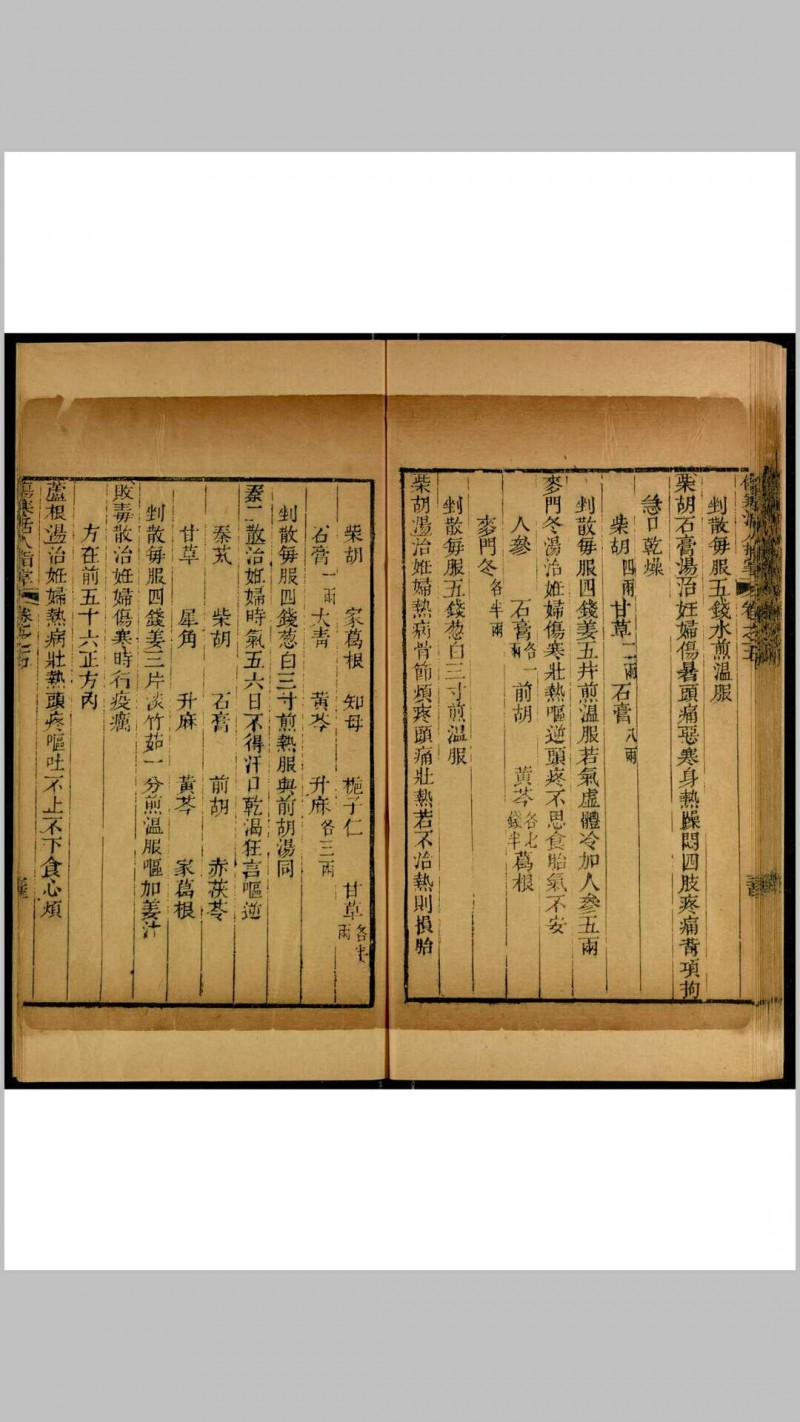 剉散每服五錢水煎溫服
柴胡石膏湯治妊婦傷暑頭痛惡寒身熱躁悶四肢疼痛背項拘
急口乾燥
柴胡四兩 甘草二兩 石膏八兩
剉散每服四錢姜五片煎溫服若氣虛體冷加人參五兩
麥門冬湯治妊婦傷寒壯熱嘔逆頭疼不思食胎氣不安
人參 石膏各一兩 前胡 黃芩各七錢半 葛根
麥門冬各半兩
剉散每服五錢葱白三寸煎溫服
柴胡湯治妊婦熱病骨節煩疼頭痛壯熱若不治熱則損胎
柴胡 家葛根 知母 梔子仁 甘草各半兩
石膏一兩 大青 黃芩 升麻各三兩
剉散每服四錢葱白三寸煎熱服與前胡湯同
秦二散治妊婦時氣五六日不得汗口乾渴狂言嘔逆
秦艽 柴胡 石膏 前胡 赤茯苓
甘草 犀角 升麻 黃芩 家葛根
剉散每服四錢姜三片淡竹茹一分煎溫服嘔加姜汁
敗毒散治妊婦傷寒時行疫癘
方在前五十六正方內
蘆根湯治妊婦熱病壯熱頭疼嘔吐不止不下食心煩
傷寒活人指掌 卷之五